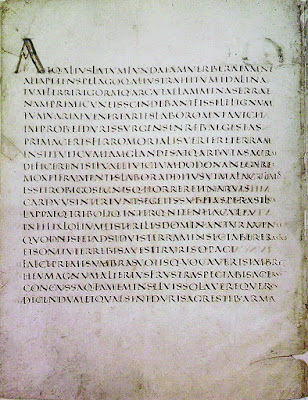 ATQALIUSLATUMFUNDAIAMVERBERATAMNE
ALTAPETENSPELAGOQALIUSTRAHITUMIDALINA
TUMFERRIRIGORATQARGUTAELAMMINASERRAE
NAMPRIMICUNEISSCINDEBANTFISSILELIGNUM
TUMVARIAEVENEREARTESLABOROMNIAVICIT
IMPROBETDURISURGENSINREBALGESTAS
PRIMACERESFERROMORTALISVERTERETERRAM
INSTITUITCUMIAMGLANDESATQARBUTASACRAE
DEFICERENTSILVAEETVICTUMDODONANEGARET
MOXETFRUMENTISLABORADDITUSUTMALACULMOS
ESSETROBIGOSEGNISQHORRERETINARVIS
CARDUUSINTEREUNTSEGETESSUBITASPERASILVA
LAPPAEQTRIBOLIQINTERQNITENTIACULTA
INFELIXLOLIUMETSTERILESDOMINANTURAVENAE
QUODNISIETADSIDUISTERRAMINSECTABERERASTRIS
ETSONITUTERREBISAVESETRURISOPACI
FALCEPREMESUMBRASVOTISQVOCAVERISIMBREM
HEUMAGNUMALTERIUSFRUSTRASPECTABISACERVOM
CONCUSSAQFAMEMINSILVISSOLAVEREQUERCU
DICENDUMETQUAESINTDURISAGRESTIBARMA